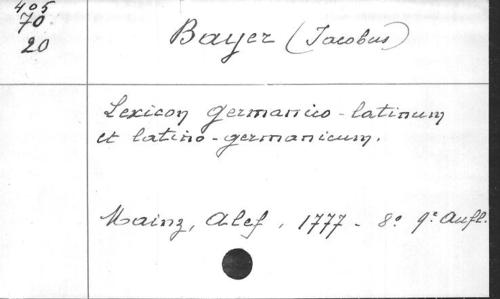 405
70
20
Bayer (Jacobus)
Lexicon germanico-latinum
et latino-germanicum.
Mainz, Alef, 1777 - 8° 9e Aufl.